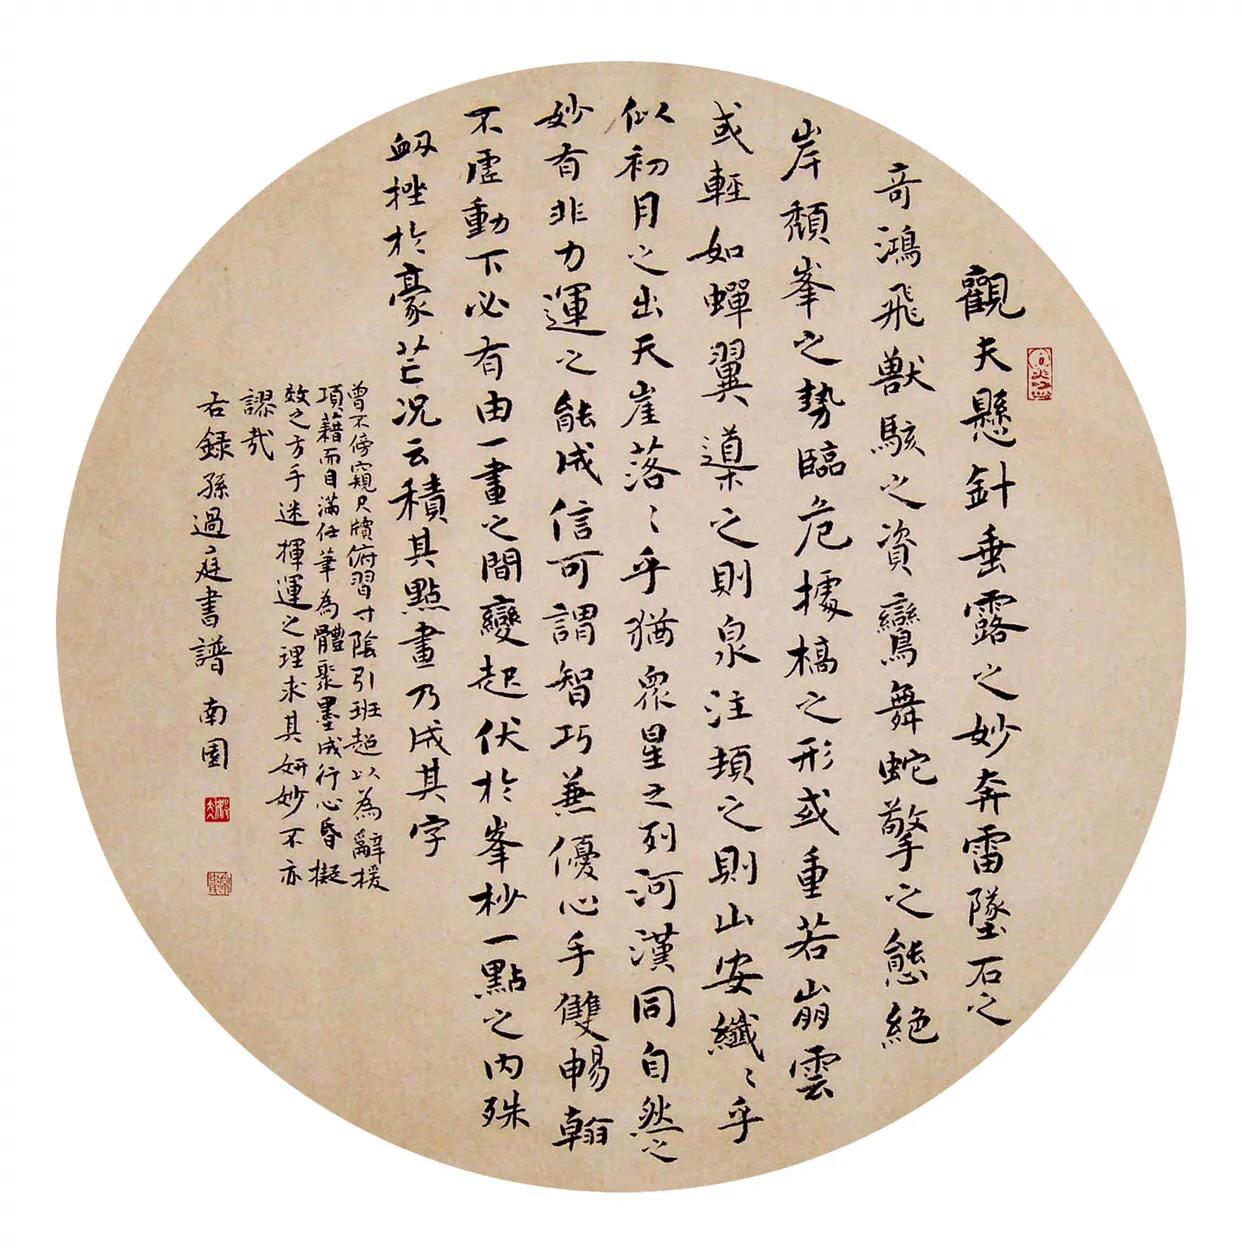 觀夫懸針垂露之妙奔雷墜石之
奇鴻飛獸駭之資鸞舞蛇擎之態絕
岸頹峯之勢臨危據槁之形或重若崩雲
或輕如蟬翼導之則泉注頓之則山安纖〻乎
似初月之出天崖落〻乎猶眾星之列河漢同自然之
妙有非力運之能成信可謂智巧兼優心手雙暢翰
不虛動下必有由一畫之間變起伏於峯杪一點之內殊
衄挫於豪芒況云積其點畫乃成其字
曾不傍窺尺牘俯習寸陰引班超以為辭援
項藉而自滿任筆為體聚墨成行心昏擬
效之方手迷揮運之理求其妍妙不亦
謬哉
右錄孫過庭書譜 南園